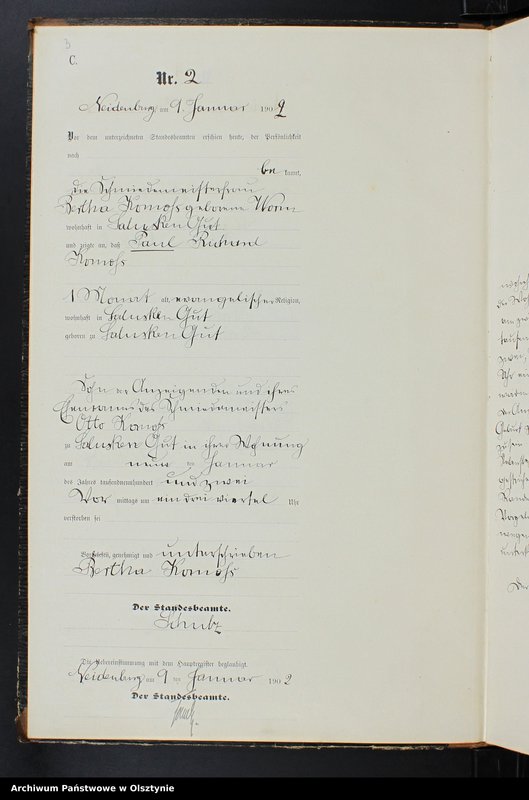 3
C.
Nr. 2
Neidenburg am 9. Januar 1902
Vor dem unterzeichneten Standesbeamten erschien heute, der Persönlichkeit
nach
be kannt,
die Schmiedemeisterfrau
Bertha Komoss geborene Worm
wohnhaft in Salusken Gut
und zeigte an, daß Paul Richard
Komoss
1 Monat alt, evangelischer Religion,
wohnhaft in Salusken Gut
geboren zu Salusken Gut
Sohn der Anzeigenden und ihres
Ehemannes des Schmiedemeisters
Otto Komoss
zu Salusken Gut in ihrer Wohnung
am neun ten Januar
des Jahres tausendneunhundert und zwei
Vor mittags um ein drei viertel Uhr
verstorben sei
Vorgelesen, genehmigt und unterschrieben
Bertha Komoss
Der Standesbeamte.
Schulz
Die Uebereinstimmung mit dem Hauptregister beglaubigt.
Neidenburg am 9 ten Januar 1902
Der Standesbeamte.
Archiwum Państwowe w Olsztynie